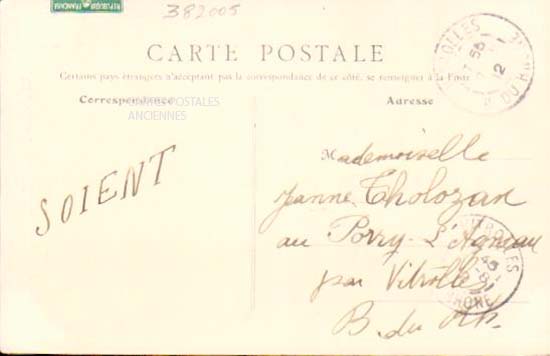 RÉPUBLIQUE FRANÇAISE
382005
CARTE POSTALE
Certains pays étrangers n'acceptant pas la correspondance de ce côté, se renseigner à la Poste
Correspondance
Adresse
CARTES POSTALES
ANCIENNES
SOIENT
Mademoiselle
Jeanne Tholozan
au Porry-L'Agneau
par Vitrolles
B. du Rh.
VITROLLES
DU RHÔNE